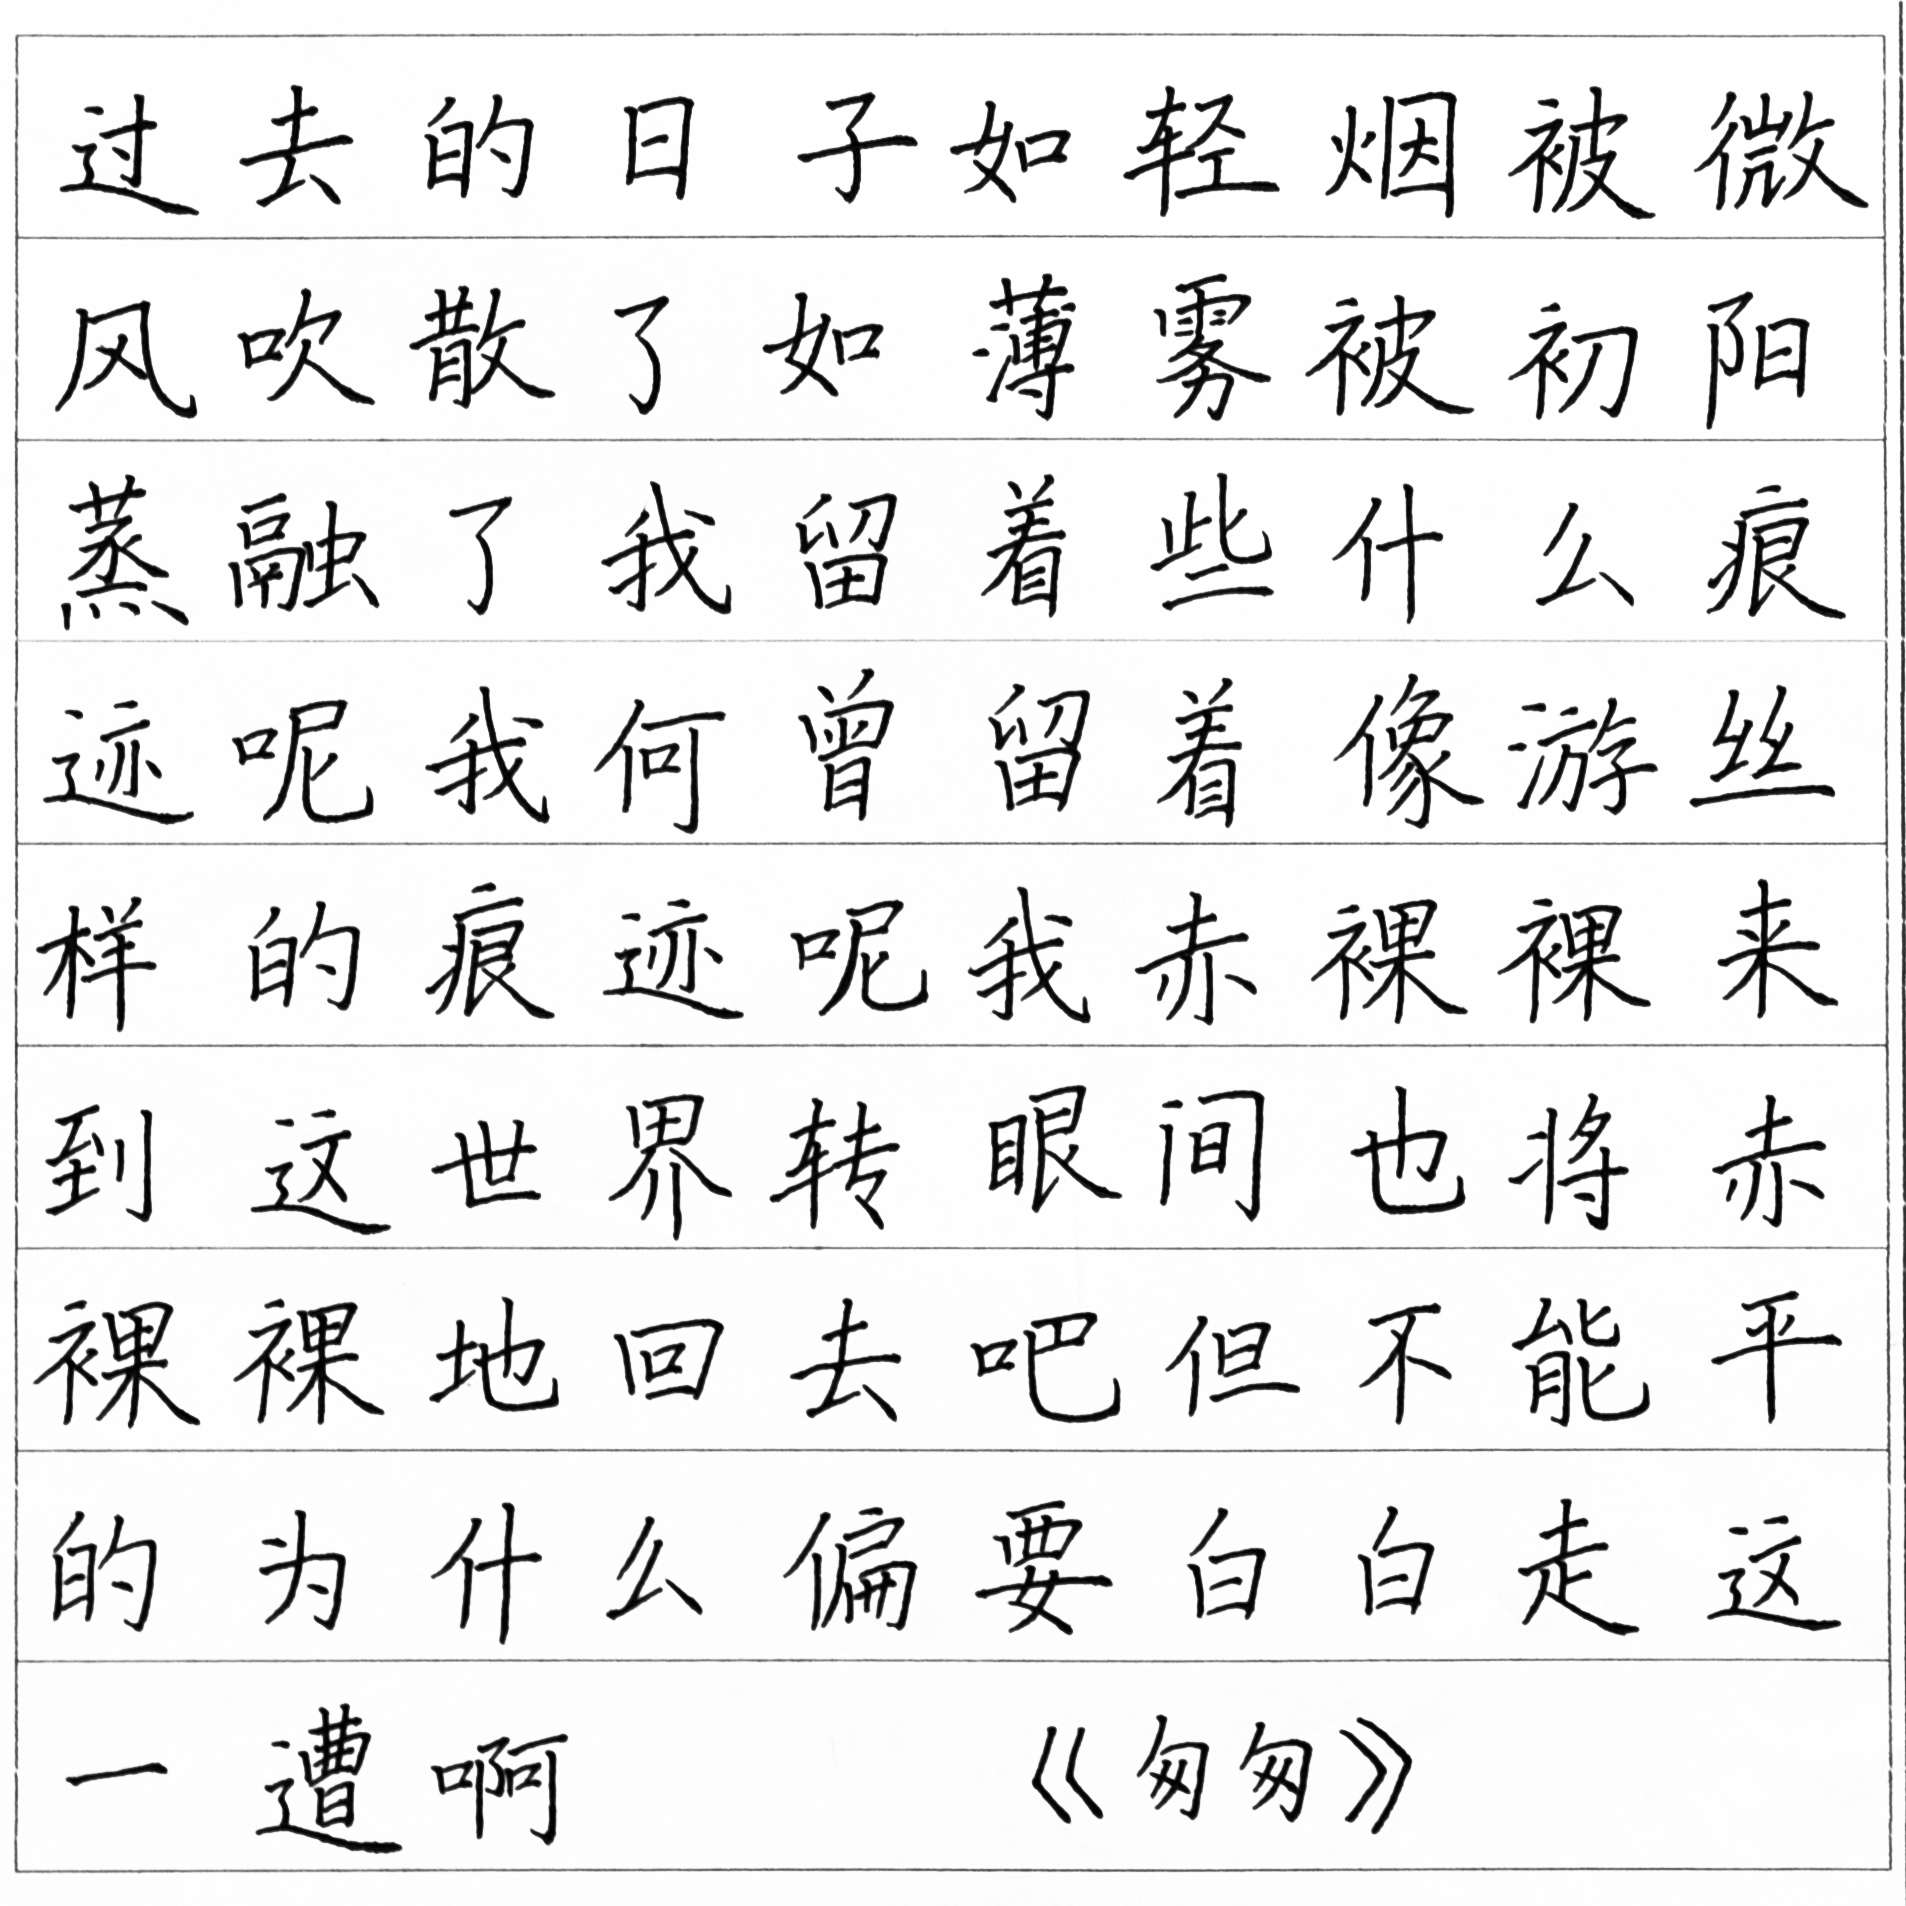 过去的日子如轻烟被微
风吹散了如薄雾被初阳
蒸融了我留着些什么痕
迹呢我何曾留着像游丝
样的痕迹呢我赤裸裸来
到这世界转眼间也将赤
裸裸地回去吧但不能平
的为什么偏要白白走这
一遭啊 《匆匆》